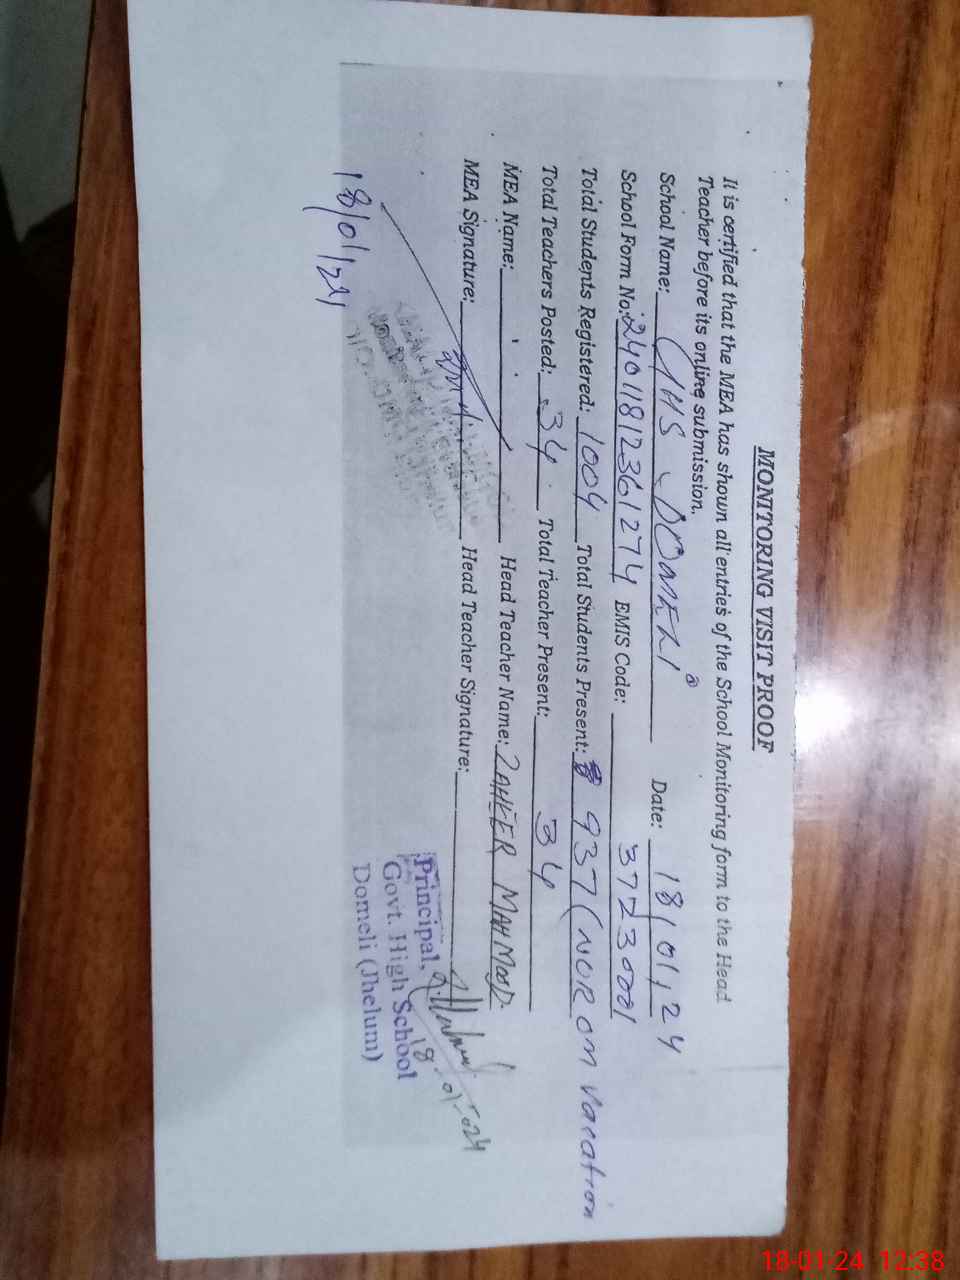 MONITORING VISIT PROOF
It is certified that the MEA has shown all entries of the School Monitoring form to the Head
Teacher before its online submission.
School Name: GHS DOMELI Date: 18/01/24
School Form No: 24011812361274 EMIS Code: 37230001
Total Students Registered: 1004 Total Students Present: 937 (NOR on vacation
Total Teachers Posted: 34 Total Teacher Present: 34
MEA Name: Head Teacher Name: ZAHEER MAHMOOD.
MEA Signature: Head Teacher Signature:
18/01/24
Principal,
Govt. High School
Domeli (Jhelum)
18-01-24 12:38